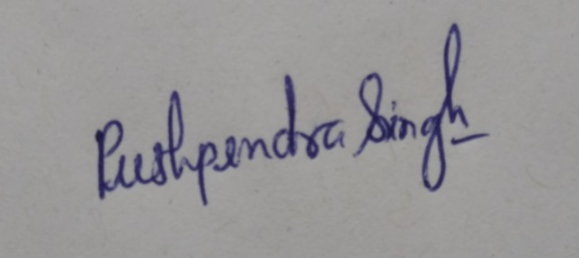 Pushpendra Singh